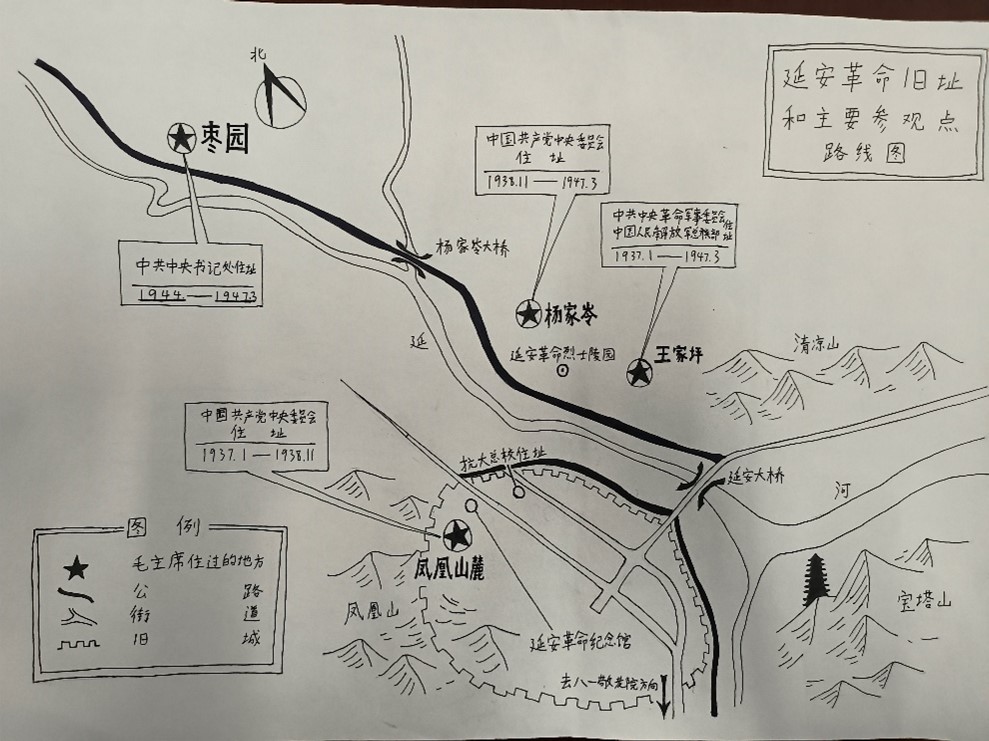 延安革命旧址
和主要参观点
路线图
北
枣园
中国共产党中央委员会
住 址
1938.11——1947.3
中共中央革命军事委员会住址
中国人民解放军总部
1937.1——1947.3
杨家岭大桥
中共中央书记处住址
1944.——1947.3
杨家岭
延安革命烈士陵园
王家坪
清凉山
延
中国共产党中央委员会
住 址
1937.1——1938.11
抗大总校住址
延安大桥
河
凤凰山麓
图 例
毛主席住过的地方
公 路
街 道
旧 城
凤凰山
延安革命纪念馆
宝塔山
去八一敬老院方向